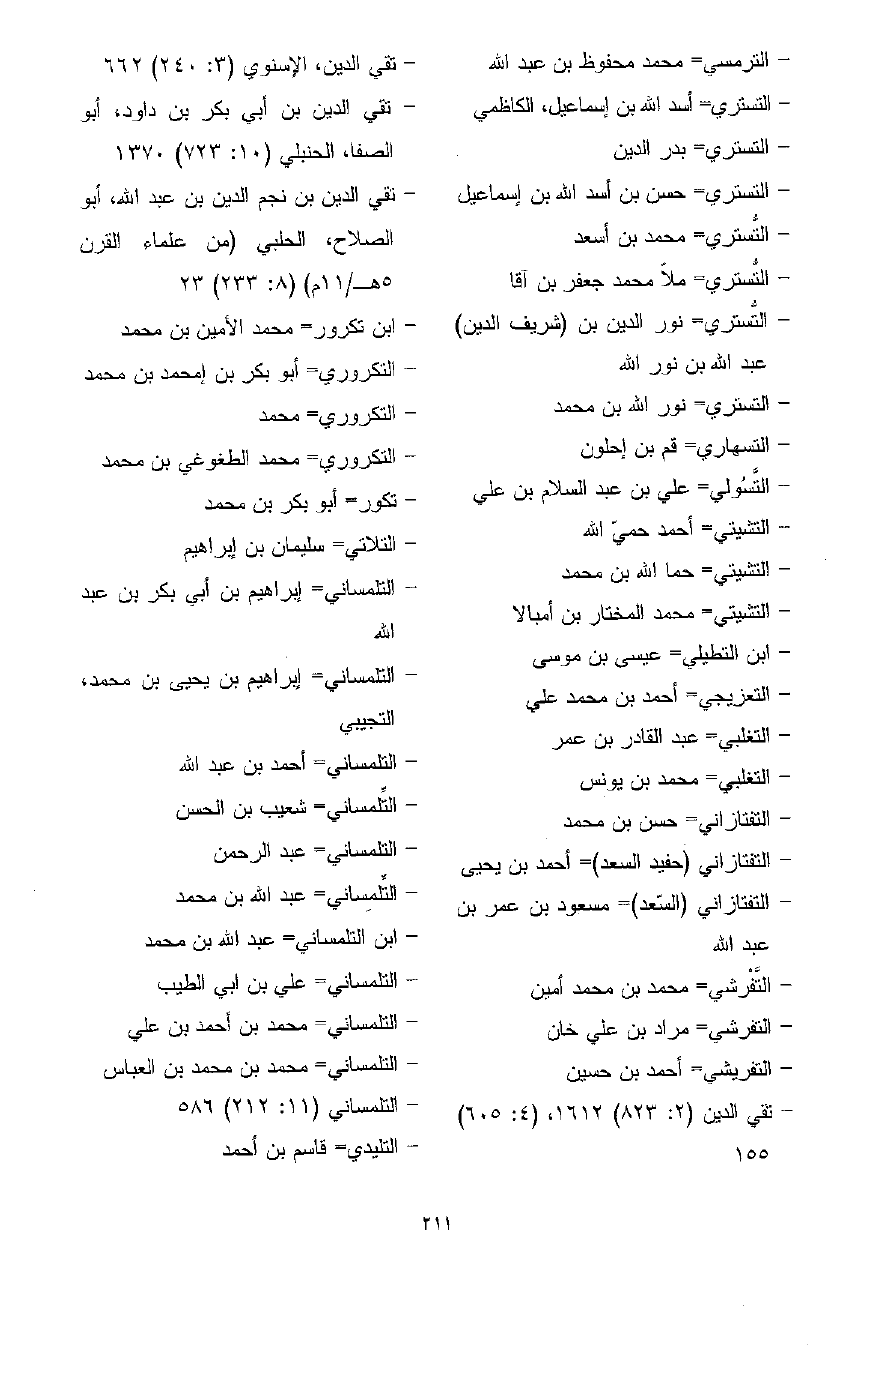 - الترمسي= محمد محفوظ بن عبد الله
- التستري= أسد الله بن إسماعيل، الكاظمي
- التستري= بدر الدين
- التستري= حسن بن أسد الله بن إسماعيل
- التُّستري= محمد بن أسعد
- التُّستري= ملاّ محمد جعفر بن آقا
- التُّستري= نور الدين بن (شريف الدين)
عبد الله بن نور الله
- التستري= نور الله بن محمد
- التسهاري= قم بن إحلون
- التَّسُولي= علي بن عبد السلام بن علي
- التشيتي= أحمد حميّ الله
- التشيتي= حما الله بن محمد
- التشيتي= محمد المختار بن أمبالا
- ابن التطيلي= عيسى بن موسى
- التعزيجي= أحمد بن محمد علي
- التغلبي= عبد القادر بن عمر
- التغلبي= محمد بن يونس
- التفتازاني= حسن بن محمد
- التفتازاني (حفيد السعد)= أحمد بن يحيى
- التفتازاني (السّعد)= مسعود بن عمر بن
عبد الله
- التَّفْرشي= محمد بن محمد أمين
- التفرشي= مراد بن علي خان
- التفريشي= أحمد بن حسين
- تقي الدين (٢: ٨٢٣) ١٦١٢، (٤: ٦٠٥)
١٥٥
- تقي الدين، الإسنوي (٣: ٢٤٠) ٦٦٢
- تقي الدين بن أبي بكر بن داود، أبو
الصفا، الحنبلي (١٠: ٧٢٣) ١٣٧٠
- تقي الدين بن نجم الدين بن عبد الله، أبو
الصلاح، الحلبي (من علماء القرن
٥هــ/١١م) (٨: ٢٣٣) ٢٣
- ابن تكرور= محمد الأمين بن محمد
- التكروري= أبو بكر بن إمحمد بن محمد
- التكروري= محمد
- التكروري= محمد الطغوغي بن محمد
- تكور= أبو بكر بن محمد
- التلاتي= سليمان بن إبراهيم
- التلمساني= إبراهيم بن أبي بكر بن عبد
الله
- التلمساني= إبراهيم بن يحيى بن محمد،
التجيبي
- التلمساني= أحمد بن عبد الله
- التِّلمساني= شعيب بن الحسن
- التلمساني= عبد الرحمن
- التِّلِمساني= عبد الله بن محمد
- ابن التلمساني= عبد الله بن محمد
- التلمساني= علي بن ابي الطيب
- التلمساني= محمد بن أحمد بن علي
- التلمساني= محمد بن محمد بن العباس
- التلمساني (١١: ٢١٢) ٥٨٦
- التليدي= قاسم بن أحمد
٢١١